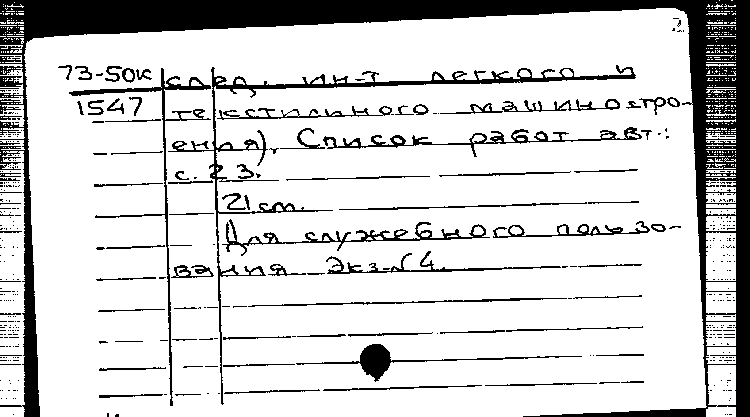 2
73-50к след. ин-т легкого и
1547 текстильного машинострo-
ения). Список работ авт.:
с. 23.
21 см.
Для служебного пользо-
вания Экз. N 4.